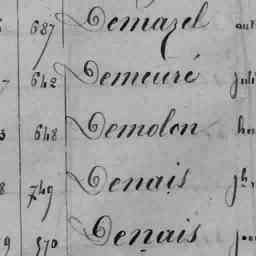 687 Demazel
642 Demeuré
648 Demolon
749 Denais
570 Denais